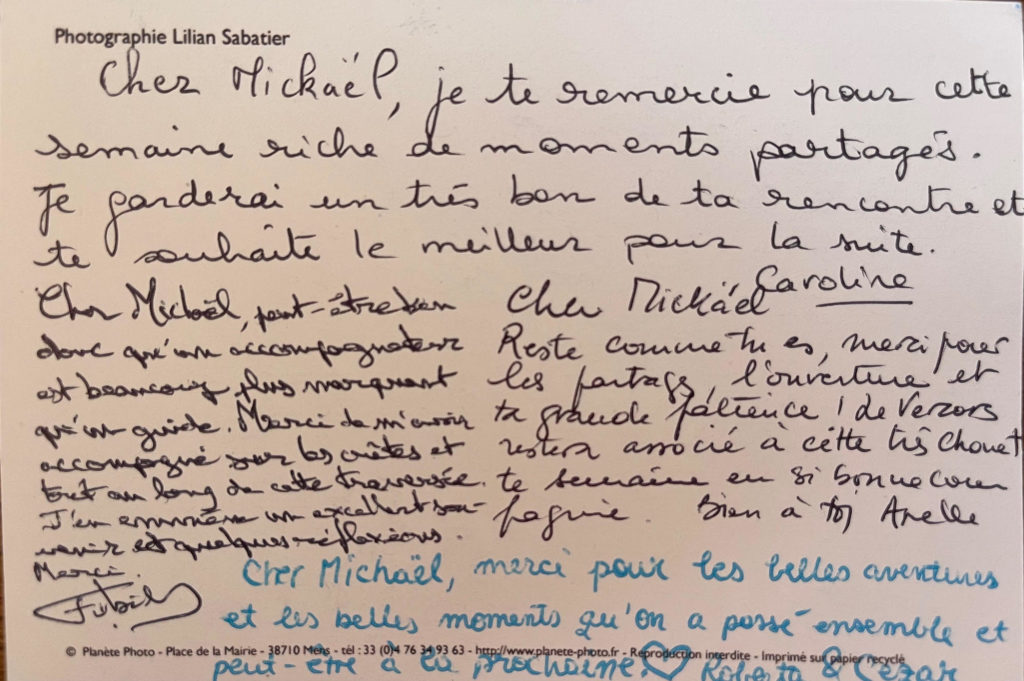 Photographie Lilian Sabatier
Cher Mickaël, je te remercie pour cette
semaine riche de moments partagés.
Je garderai un très bon de ta rencontre et
te souhaite le meilleur pour la suite.
Caroline
Cher Mickaël, peut-être bien
donc qu'un accompagnateur
est beaucoup plus marquant
qu'un guide. Merci de m'avoir
accompagné sur les crêtes et
tout au long de cette traversée.
J'en emmène un excellent sou-
venir et quelques réflexions.
Merci
Cher Mickäel
Reste comme tu es, merci pour
les partags, l'ouverture et
ta grande patience ! de Vercors
restera associé à cette très chouet
te semaine en si bonne com
pagnie. Bien à toi
Cher Michaël, merci pour les belles aventures
et les belles moments qu'on a passé ensemble et
peut-être à la prochaine! ♡ Roberta & Cezar
© Planète Photo - Place de la Mairie - 38710 Mens - tél : 33 (0)4 76 34 93 63 - http://www.planete-photo.fr - Reproduction interdite - Imprimé sur papier recyclé